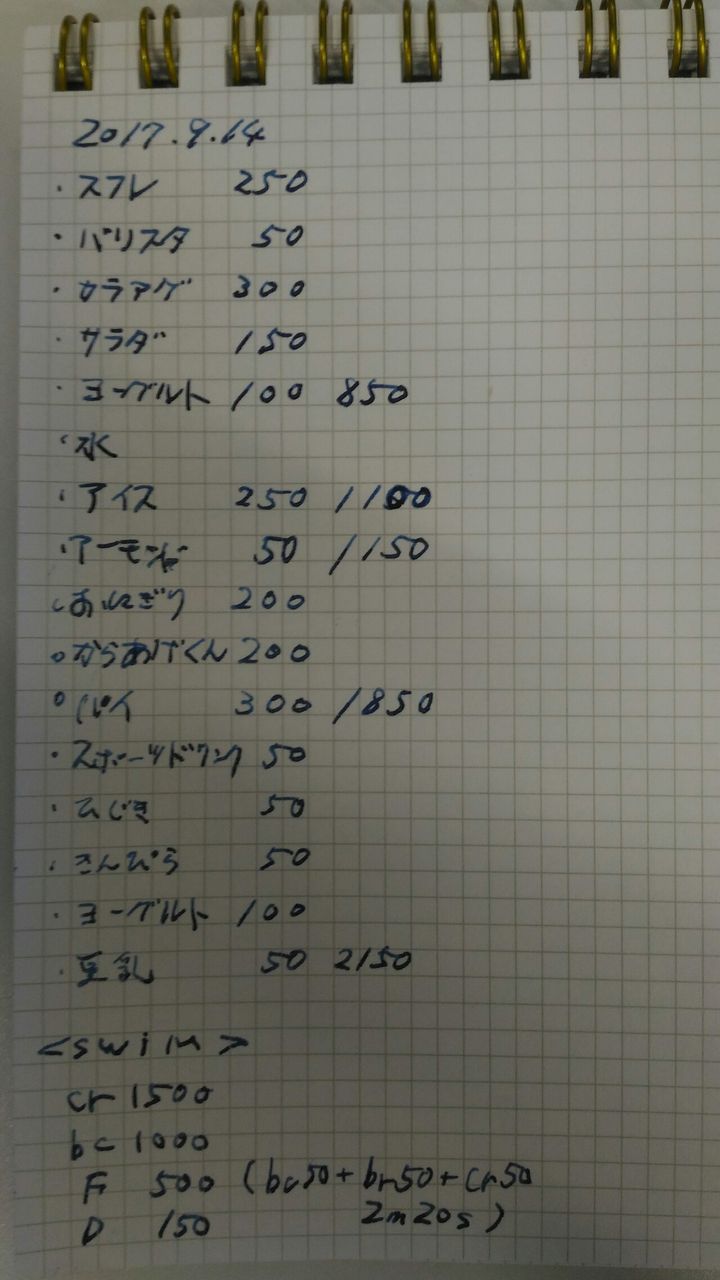 2017.9.14
・スフレ 250
・バリスタ 50
・カラアゲ 300
・サラダ 150
・ヨーグルト 100 850
・水
・アイス 250 /1100
・アーモンド 50 /1150
。おにぎり 200
。からあげくん 200
。パイ 300 /1850
・スポーツドリンク 50
・ひじき 50
・きんぴら 50
・ヨーグルト 100
・豆乳 50 2150
<swim>
cr 1500
bc 1000
F 500 (bc50+br50+cr50
2m20s)
D 150